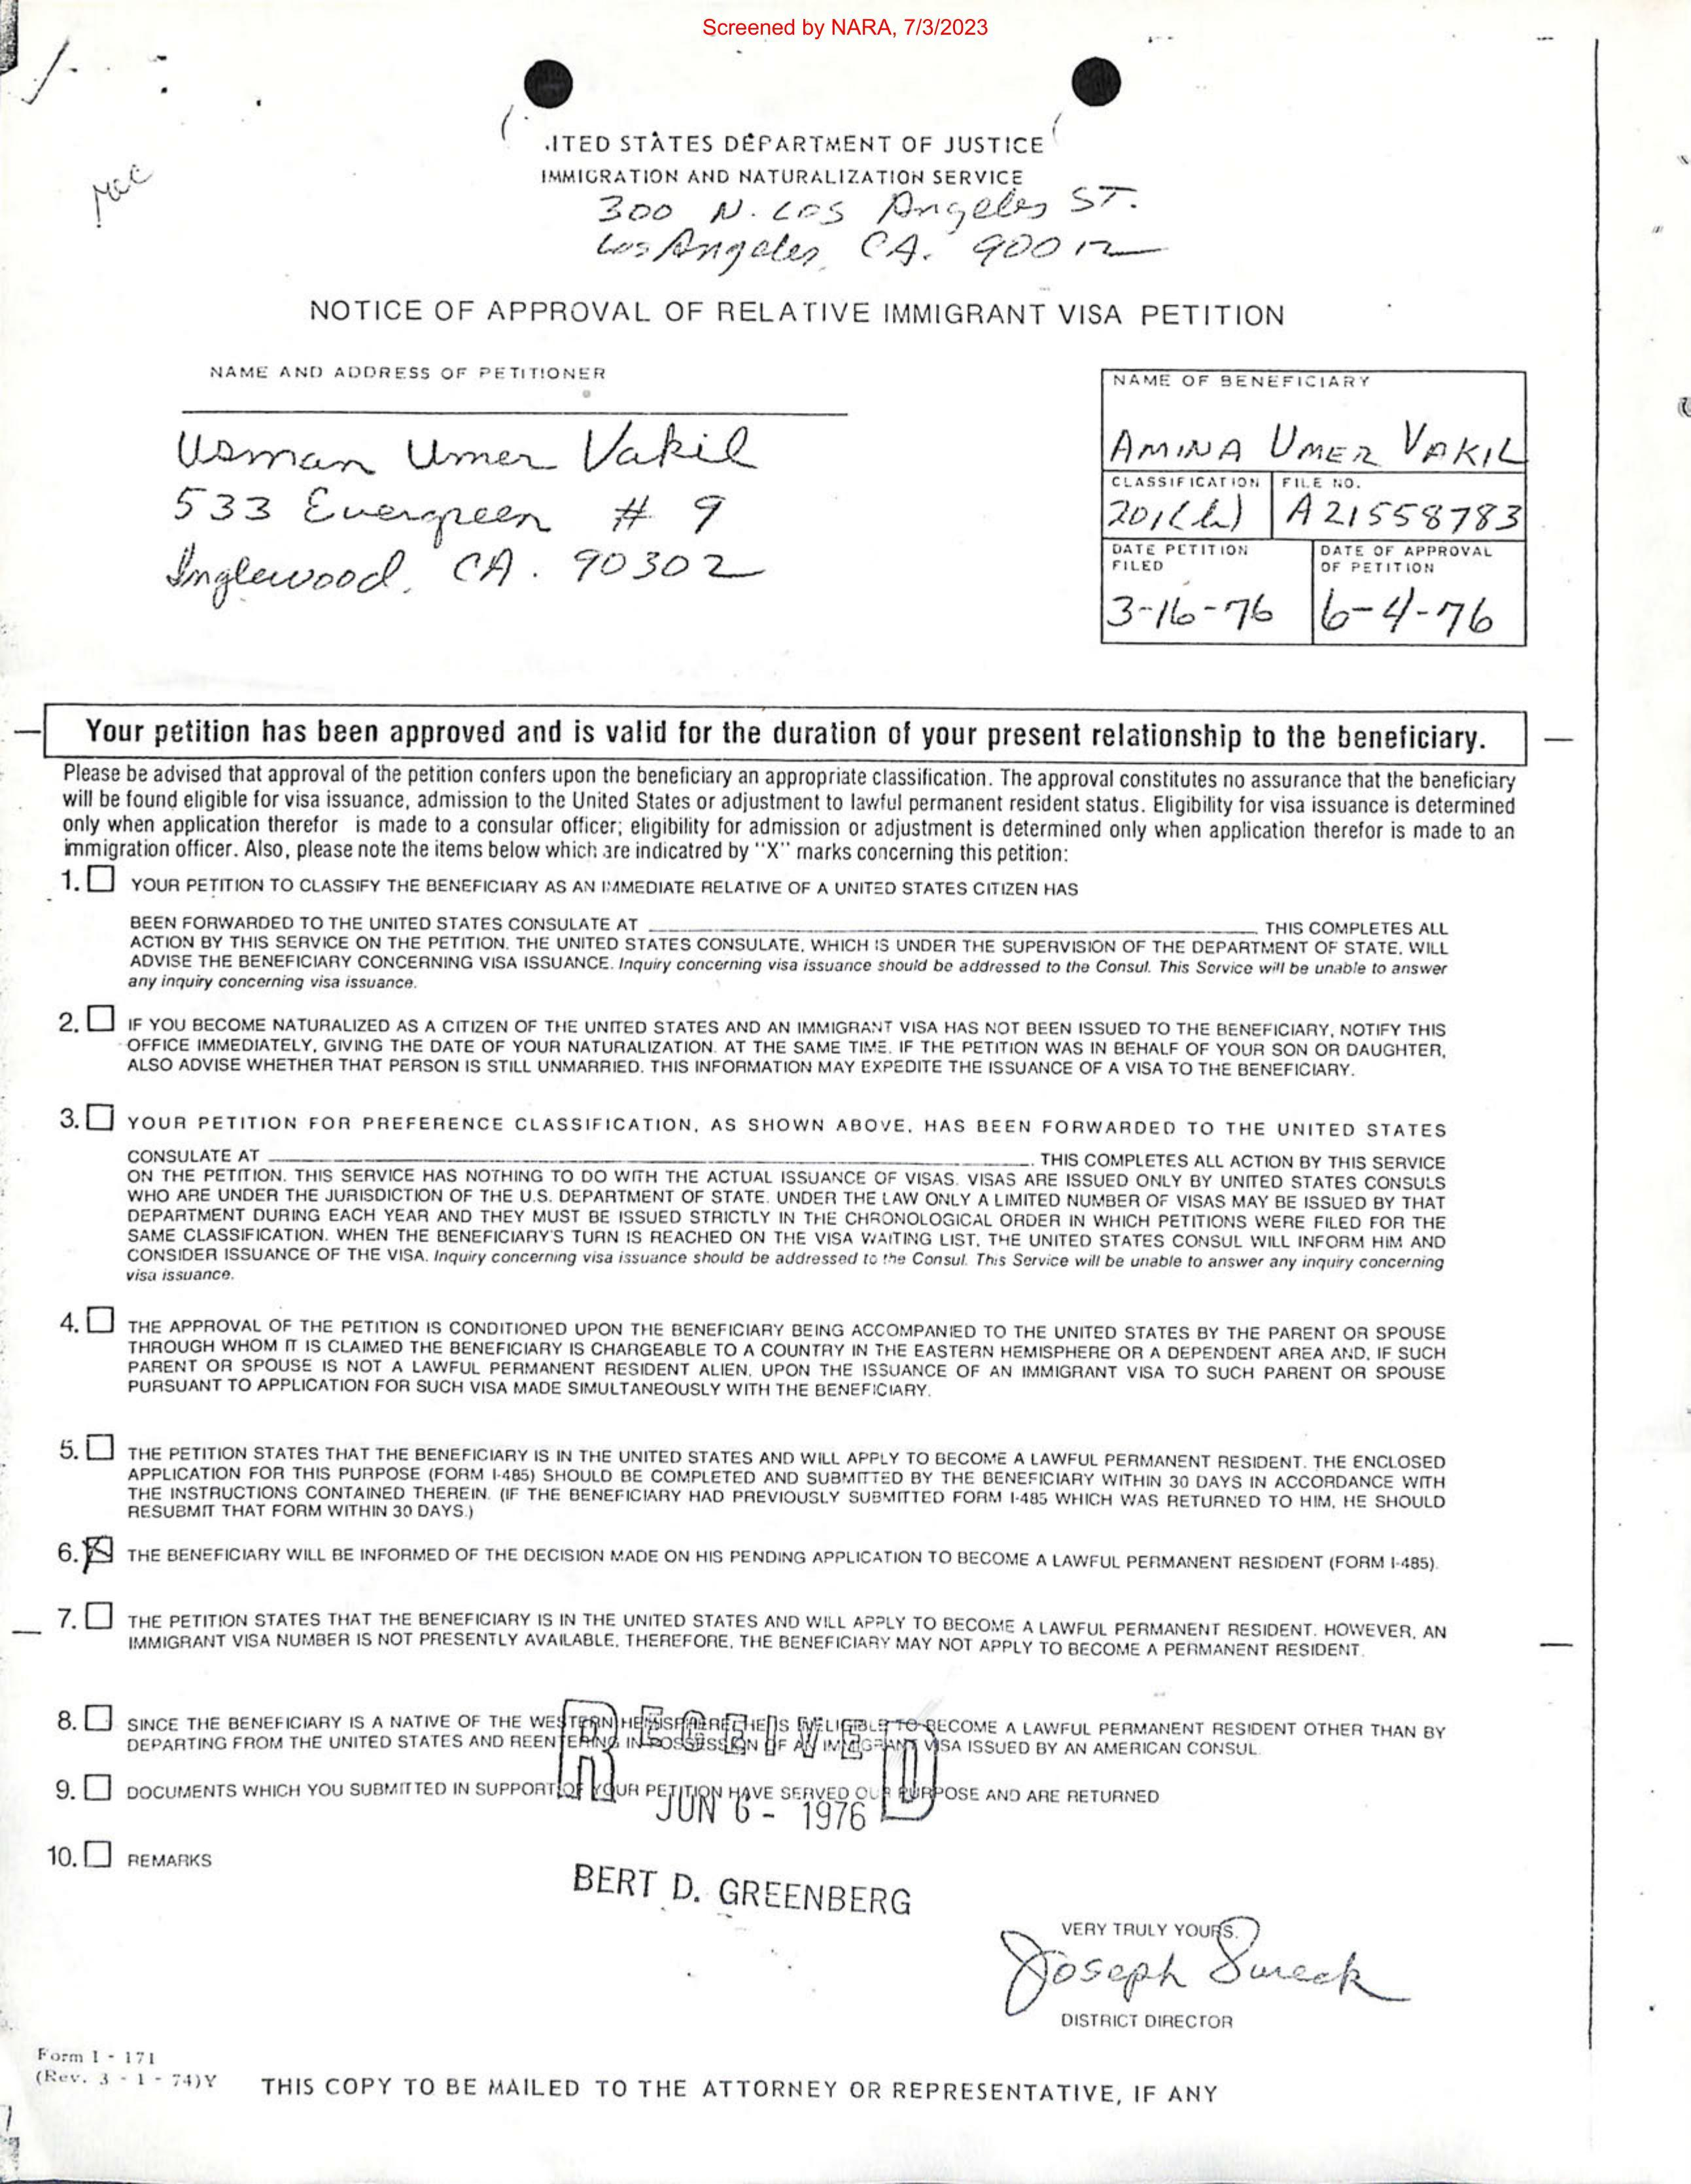 Screened by NARA, 7/3/2023
.ITED STATES DEPARTMENT OF JUSTICE
IMMIGRATION AND NATURALIZATION SERVICE
300 N. Los Angeles ST.
Los Angeles, CA. 90012
NOTICE OF APPROVAL OF RELATIVE IMMIGRANT VISA PETITION
NAME AND ADDRESS OF PETITIONER
Usman Umer Vakil
533 Evergreen # 9
Inglewood, CA. 90302
NAME OF BENEFICIARY
AMINA UMER VAKIL
CLASSIFICATION
201(b)
FILE NO.
A21558783
DATE PETITION
FILED
3-16-76
DATE OF APPROVAL
OF PETITION
6-4-76
Your petition has been approved and is valid for the duration of your present relationship to the beneficiary.
Please be advised that approval of the petition confers upon the beneficiary an appropriate classification. The approval constitutes no assurance that the beneficiary
will be found eligible for visa issuance, admission to the United States or adjustment to lawful permanent resident status. Eligibility for visa issuance is determined
only when application therefor is made to a consular officer; eligibility for admission or adjustment is determined only when application therefor is made to an
immigration officer. Also, please note the items below which are indicatred by "X" marks concerning this petition:
1. YOUR PETITION TO CLASSIFY THE BENEFICIARY AS AN IMMEDIATE RELATIVE OF A UNITED STATES CITIZEN HAS
BEEN FORWARDED TO THE UNITED STATES CONSULATE AT THIS COMPLETES ALL
ACTION BY THIS SERVICE ON THE PETITION. THE UNITED STATES CONSULATE, WHICH IS UNDER THE SUPERVISION OF THE DEPARTMENT OF STATE, WILL
ADVISE THE BENEFICIARY CONCERNING VISA ISSUANCE. Inquiry concerning visa issuance should be addressed to the Consul. This Service will be unable to answer
any inquiry concerning visa issuance.
2. IF YOU BECOME NATURALIZED AS A CITIZEN OF THE UNITED STATES AND AN IMMIGRANT VISA HAS NOT BEEN ISSUED TO THE BENEFICIARY, NOTIFY THIS
OFFICE IMMEDIATELY, GIVING THE DATE OF YOUR NATURALIZATION. AT THE SAME TIME, IF THE PETITION WAS IN BEHALF OF YOUR SON OR DAUGHTER,
ALSO ADVISE WHETHER THAT PERSON IS STILL UNMARRIED. THIS INFORMATION MAY EXPEDITE THE ISSUANCE OF A VISA TO THE BENEFICIARY.
3. YOUR PETITION FOR PREFERENCE CLASSIFICATION, AS SHOWN ABOVE, HAS BEEN FORWARDED TO THE UNITED STATES
CONSULATE AT . THIS COMPLETES ALL ACTION BY THIS SERVICE
ON THE PETITION. THIS SERVICE HAS NOTHING TO DO WITH THE ACTUAL ISSUANCE OF VISAS. VISAS ARE ISSUED ONLY BY UNITED STATES CONSULS
WHO ARE UNDER THE JURISDICTION OF THE U.S. DEPARTMENT OF STATE. UNDER THE LAW ONLY A LIMITED NUMBER OF VISAS MAY BE ISSUED BY THAT
DEPARTMENT DURING EACH YEAR AND THEY MUST BE ISSUED STRICTLY IN THE CHRONOLOGICAL ORDER IN WHICH PETITIONS WERE FILED FOR THE
SAME CLASSIFICATION. WHEN THE BENEFICIARY'S TURN IS REACHED ON THE VISA WAITING LIST, THE UNITED STATES CONSUL WILL INFORM HIM AND
CONSIDER ISSUANCE OF THE VISA. Inquiry concerning visa issuance should be addressed to the Consul. This Service will be unable to answer any inquiry concerning
visa issuance.
4. THE APPROVAL OF THE PETITION IS CONDITIONED UPON THE BENEFICIARY BEING ACCOMPANIED TO THE UNITED STATES BY THE PARENT OR SPOUSE
THROUGH WHOM IT IS CLAIMED THE BENEFICIARY IS CHARGEABLE TO A COUNTRY IN THE EASTERN HEMISPHERE OR A DEPENDENT AREA AND, IF SUCH
PARENT OR SPOUSE IS NOT A LAWFUL PERMANENT RESIDENT ALIEN, UPON THE ISSUANCE OF AN IMMIGRANT VISA TO SUCH PARENT OR SPOUSE
PURSUANT TO APPLICATION FOR SUCH VISA MADE SIMULTANEOUSLY WITH THE BENEFICIARY.
5. THE PETITION STATES THAT THE BENEFICIARY IS IN THE UNITED STATES AND WILL APPLY TO BECOME A LAWFUL PERMANENT RESIDENT. THE ENCLOSED
APPLICATION FOR THIS PURPOSE (FORM I-485) SHOULD BE COMPLETED AND SUBMITTED BY THE BENEFICIARY WITHIN 30 DAYS IN ACCORDANCE WITH
THE INSTRUCTIONS CONTAINED THEREIN. (IF THE BENEFICIARY HAD PREVIOUSLY SUBMITTED FORM I-485 WHICH WAS RETURNED TO HIM, HE SHOULD
RESUBMIT THAT FORM WITHIN 30 DAYS.)
6. THE BENEFICIARY WILL BE INFORMED OF THE DECISION MADE ON HIS PENDING APPLICATION TO BECOME A LAWFUL PERMANENT RESIDENT (FORM I-485).
7. THE PETITION STATES THAT THE BENEFICIARY IS IN THE UNITED STATES AND WILL APPLY TO BECOME A LAWFUL PERMANENT RESIDENT. HOWEVER, AN
IMMIGRANT VISA NUMBER IS NOT PRESENTLY AVAILABLE. THEREFORE, THE BENEFICIARY MAY NOT APPLY TO BECOME A PERMANENT RESIDENT.
8. SINCE THE BENEFICIARY IS A NATIVE OF THE WESTERN HEMISPHERE HE IS INELIGIBLE TO BECOME A LAWFUL PERMANENT RESIDENT OTHER THAN BY
DEPARTING FROM THE UNITED STATES AND REENTERING IN POSSESSION OF AN IMMIGRANT VISA ISSUED BY AN AMERICAN CONSUL.
RECEIVED
9. DOCUMENTS WHICH YOU SUBMITTED IN SUPPORT OF YOUR PETITION HAVE SERVED OUR PURPOSE AND ARE RETURNED
JUN 6 - 1976
10. REMARKS
BERT D. GREENBERG
VERY TRULY YOURS,
Joseph Sureck
DISTRICT DIRECTOR
Form I - 171
(Rev. 3 - 1 - 74)Y
THIS COPY TO BE MAILED TO THE ATTORNEY OR REPRESENTATIVE, IF ANY